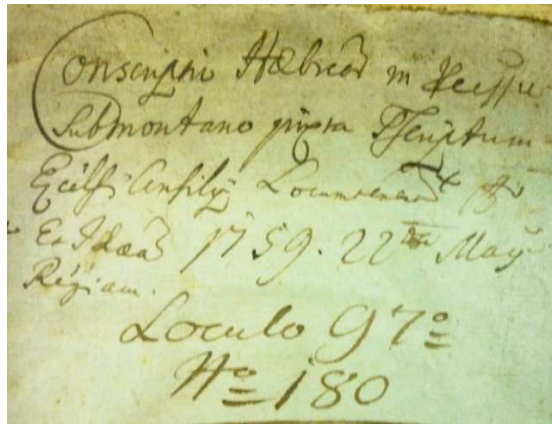 Conscriptio Hæbreor in Pcessu
Submontano juxta Pscriptum
Excelsi Consilij Locumtenen
1759. 22da May
Regiam.
Loculo 97o
No 180